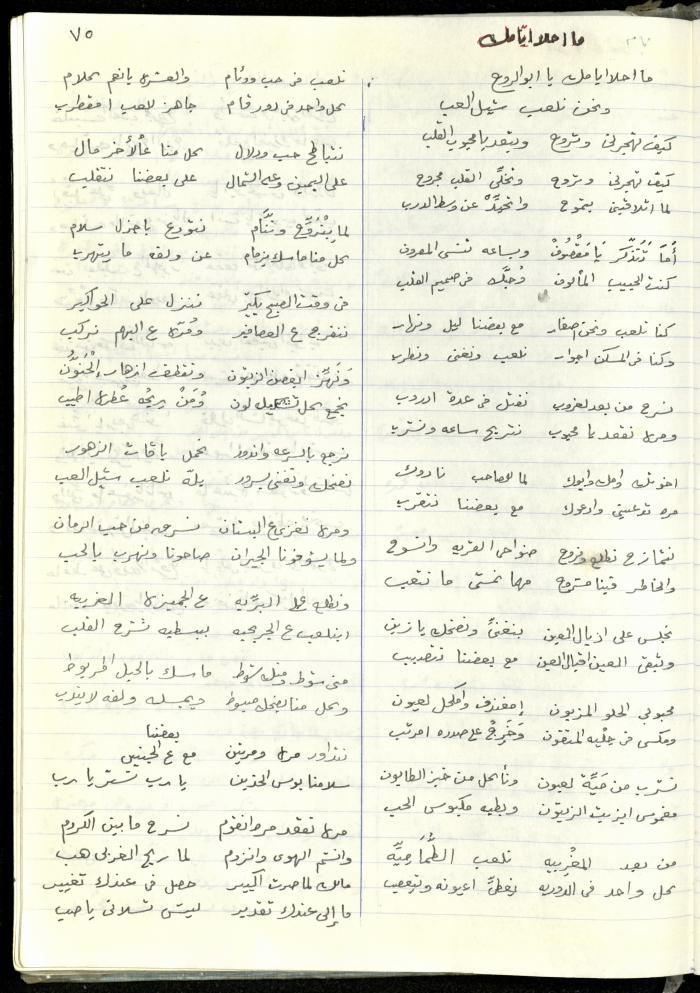 ٧٥
ما احلا ايامك
ما احلا ايامك يا ابو الروح
ونحن نلعب شيل العب
كيف تهجرني وتروح وتبعد يا محبوب القلب
كيف تهجرني وتروح وتخلّي القلب مجروح
لما اتلاقيني بتموح عن وسط الدرب
أما تتذكر يا مقصوف وبساعه تنسى المعروف
كنت الحبيب المألوف وحبك في صميم القلب
كنا نلعب ونحن اصغار مع بعضنا ليل ونهار
وكنا في المسكن اجوار نلعب ونغني ونطرب
نسرح من بعد لغروب نفتل في عدة ادروب
ومره نقعد يا محبوب نتريح ساعه ونشرب
اخوتك وامك وابوك لما لصاحب نادوك
مره تدعيني وادعوك مع بعضنا نتقرب
نتمازح نطلع ونروح ضواحي القريه والسوح
والخاطر فينا مشروح مهما نمشي ما نتعب
نجلس على اذيال العين بنغني ونضحك يا زين
وتبقى العين اقبال العين مع بعضنا نتصبب
محبوبي الحلو المزيون امغندف وامكحل لعيون
ومكسي في حلبه المتقون وخرج على صدره امرتب
نشرب من ميّة لعيون ونأكل من خبز الطابون
مغموس ابزيت الزيتون وبطيه مكبوس الحب
من بعد المغربيه نلعب الطماميّه
كل واحد في الدوريه يغطي اعيونه وبتعصب
نلعب في حب ووئام والعشره يا نعم كلام
كل واحد في دور قام جاهز للعب امقطرب
نتباطح حب ودلال كل منا عالأخر مال
على اليمين وعلى الشمال على بعضنا نتقلب
لما ننام نتودع باجزل سلام
كل منا ماسك بزمام عن ولفه ما يتهرب
في وقت الصبح بكير ننزل على الحواكير
نتفرج ع العصافير ومره ع البهم نركب
ونهز ابغصن الزيتون ونقطف ازهار الحنون
نجمع كل تشكيل لون ومن ريحه عطرا اطيب
نرجع بالسرعه واندور نحمل باقات الزهور
نضحك ونغني بسرور يلّه نلعب شيل العب
ومره نغزي ع البستان نسرق من حب الرمان
ولما يشوفونا الجيران صاحونا ونهرب بالحب
ونطلع على البريه ع الجميزه الغربيه
ابنلعب ع المرجيحه ببسطيه تشرح القلب
مني شوط ومنك شوط ماسك بالحبل المربوط
وكل منا بضحك مبسوط ويمسك ولفه لا يندب
نتذاور مره ومرتين مع بعضنا ع الجنبين
سلامنا بوس الخدين يا رب تستر يا رب
مره نقعد مره انقوم نسرح ما بين الكروم
وانشم الهوى وانزوم لما ريح الغربي هب
مالك لما صرت اكبير حصل في عندك تغيير
ما إلي عندك تقدير ليش تسلاني يا صب